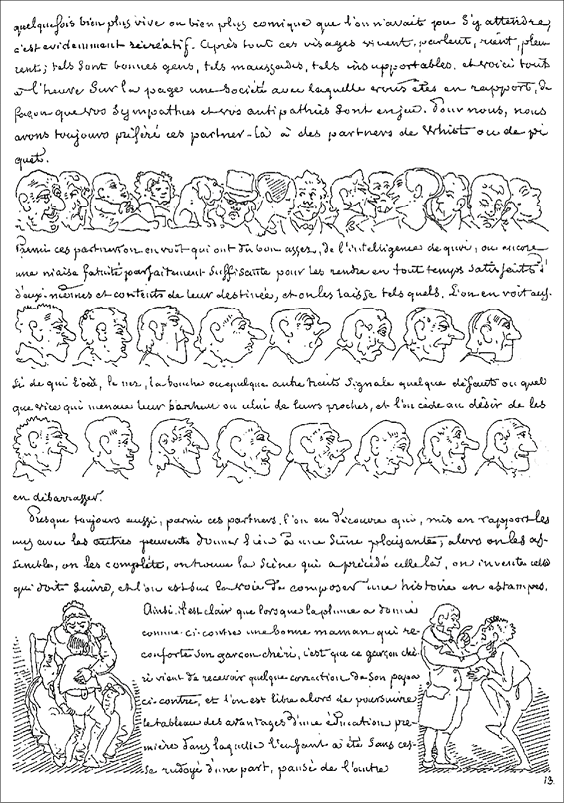 quelquefois bien plus vive ou bien plus comique que l'on n'avait pu s'y attendre,
c'est évidemment récréatif. Après tout ces visages vivent, parlent, rient, pleu
rent; tels sont bonnes gens, tels maussades, tels insupportables. et voici tout
à l'heure sur la page une société avec laquelle vous êtes en rapport, de
façon que vos sympathies et vos antipathies sont en jeu. Pour nous, nous
avons toujours préféré ces partner-là à des partners de Whist ou de pi
quet.
Parmi ces partners on en voit qui ont du bon assez, de l'intelligence de quoi, ou encore
une niaise fatuité parfaitement suffisante pour les rendre en tout temps satisfaits d'
d'eux-mêmes et contents de leur destinée, et on les laisse tels quels. L'on en voit aus.
si de qui l'œil, le nez, la bouche ou quelque autre trait signale quelque défaut ou quel
que vice qui menace leur bonheur ou celui de leurs proches, et l'on cède au désir de les
en débarrasser.
Presque toujours aussi, parmi ces partners l'on en découvre qui, mis en rapport les
uns avec les autres peuvent donner lieu à une scène plaisante; alors on les as-
semble, on les complète, on trouve la scène qui a précédé celle là, on invente celle
qui doit suivre, et l'on est sur la voie de composer une histoire en estampes.
Ainsi il est clair que lorsque la plume a donné
comme ci-contre une bonne maman qui ré-
conforte son garçon chéri, c'est que ce garçon ché
ri vient de recevoir quelque correction de son papa
ci-contre, et l'on est libre alors de poursuivre
le tableau des avantages d'une éducation pre-
mière dans laquelle l'enfant a été sans ces-
se rudoyé d'une part, pansé de l'autre
13.